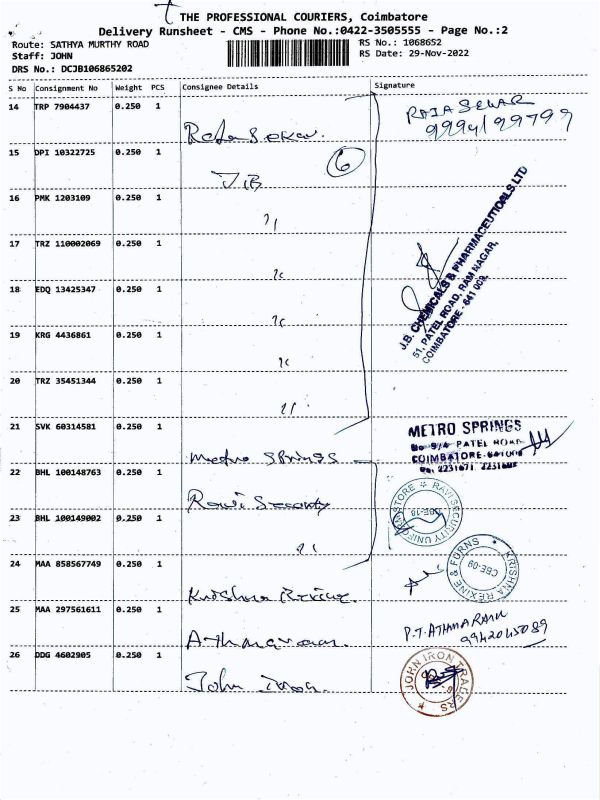 THE PROFESSIONAL COURIERS, Coimbatore
Delivery Runsheet - CMS - Phone No.:0422-3505555 - Page No.:2
Route: SATHYA MURTHY ROAD
RS No.: 1068652
Staff: JOHN
RS Date: 29-Nov-2022
DRS No.: DCJB106865202
S No Consignment No Weight PCS Consignee Details Signature
14 TRP 7904437 0.250 1
RAJA SEKAR
15 DPI 10322725 0.250 1
6
JB
16 PMK 1203109 0.250 1
17 TRZ 110002069 0.250 1
18 EDQ 13425347 0.250 1
J.B. CHEMICALS & PHARMACEUTICALS LTD
51, PATEL ROAD, RAM NAGAR,
COIMBATORE - 641 009.
19 KRG 4436861 0.250 1
20 TRZ 35451344 0.250 1
21 SVK 60314581 0.250 1
Metro Springs
METRO SPRINGS
No 9/4 PATEL ROAD
COIMBATORE-641009
22 BHL 100148763 0.250 1
Ravi Security
RAVI SECURITY UNIFORM STORE
CBE-18
23 BHL 100149002 0.250 1
24 MAA 858567749 0.250 1
Krishna Rexine
KRISHNA REXINE & FURNS
CBE-09
25 MAA 297561611 0.250 1
P.T. ATHMARAM
9942045089
26 DDG 4602905 0.250 1
John Iron
JOHN IRON TRADERS